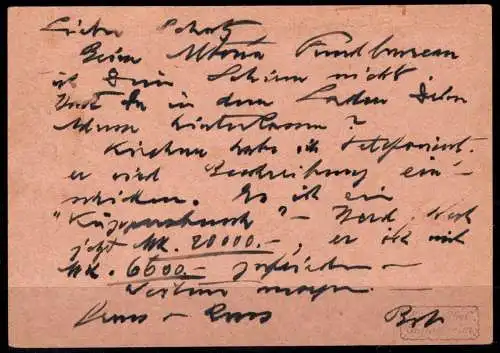 Lieber Schatz
Beim Altona Fundbureau
ist Dein Schirm nicht
Hast Du in dem Laden Deine
Adresse hinterlassen?
habe ich telefoniert.
er wird Beschreibung ein-
schicken. Es ist ein
"Küppersbusch" - Herd. Wert
jetzt Mk. 20000.-, er ist mit
Mk. 6000.- zufrieden -
Weiteres morgen.
Kuss